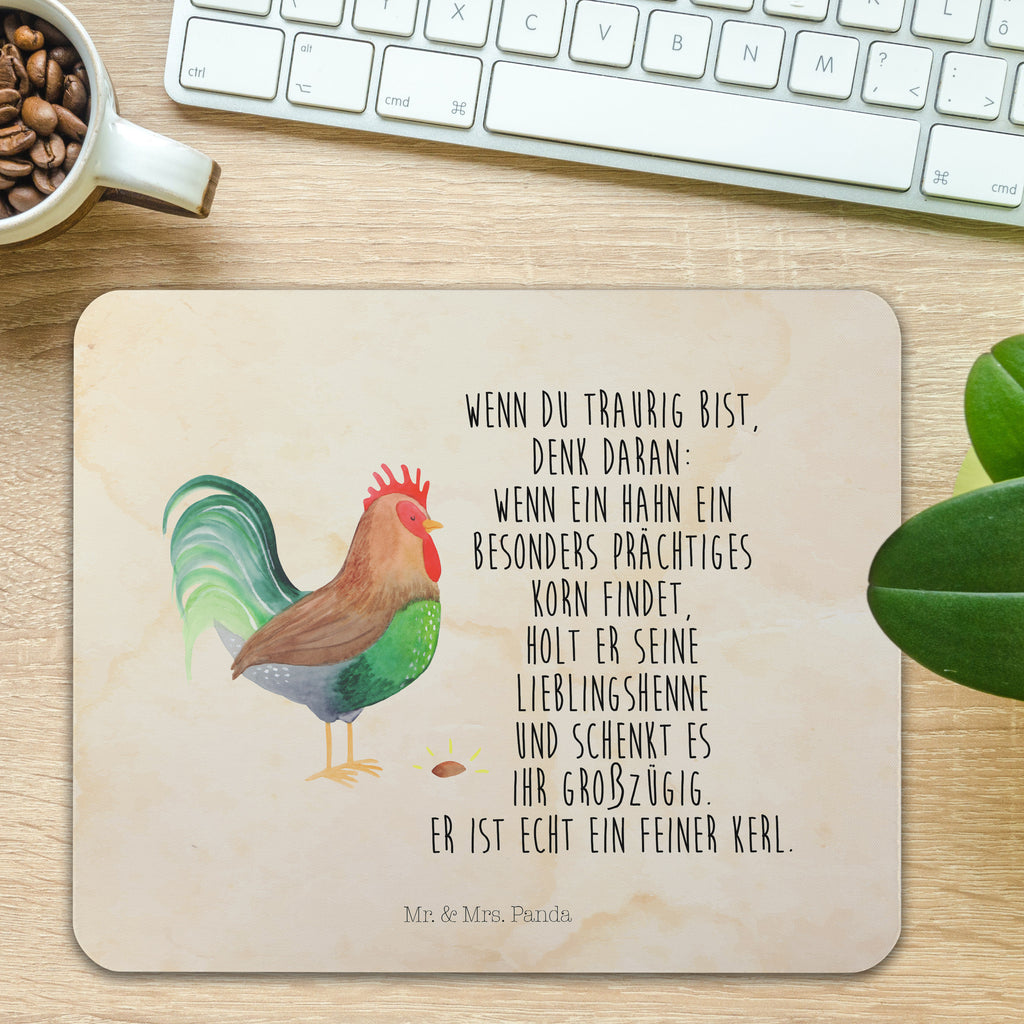 X C V B N M K L Ö
ctrl
alt
cmd
⌘
? <
: >
⌘
cmd
WENN DU TRAURIG BIST,
DENK DARAN:
WENN EIN HAHN EIN
BESONDERS PRÄCHTIGES
KORN FINDET,
HOLT ER SEINE
LIEBLINGSHENNE
UND SCHENKT ES
IHR GROßZÜGIG.
ER IST ECHT EIN FEINER KERL.
Mr. & Mrs. Panda